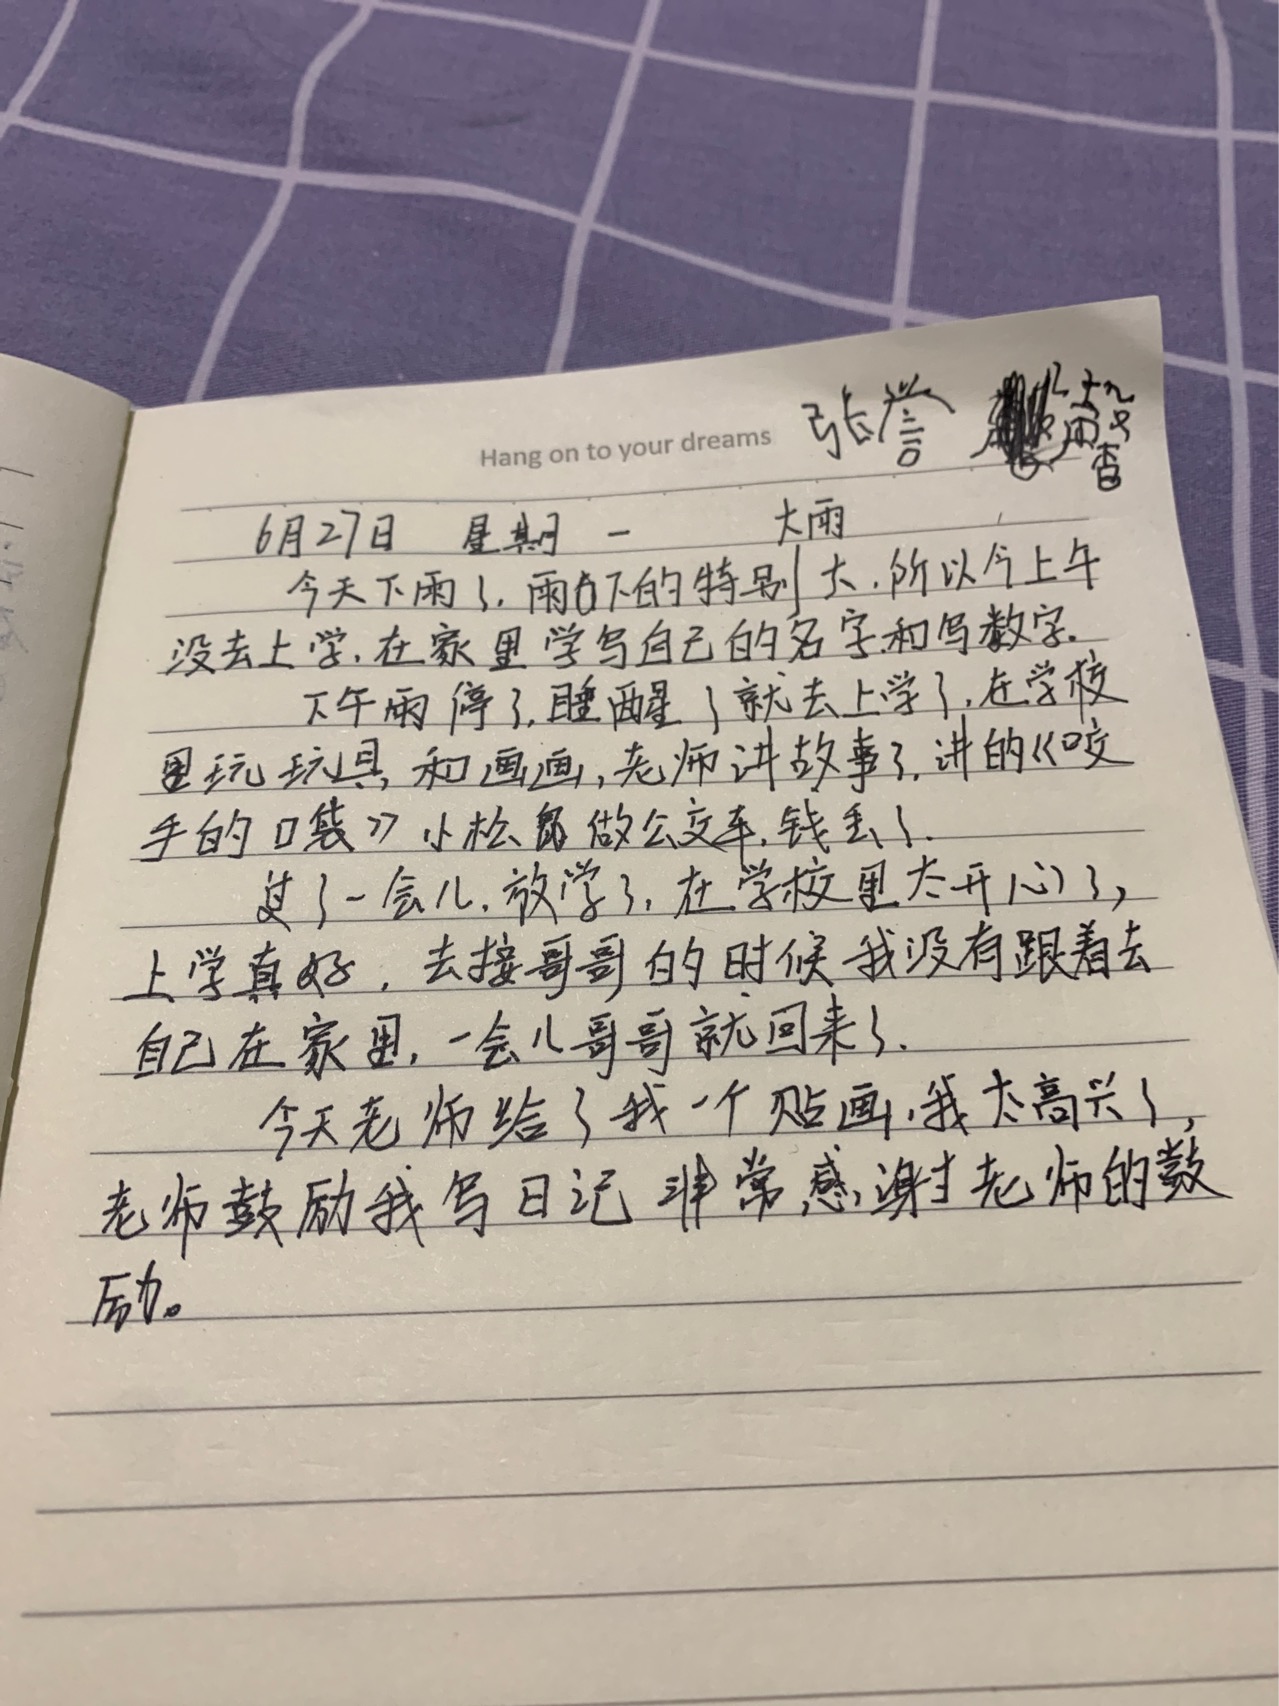 Hang on to your dreams 张誉
6月27日 星期一 大雨
今天下雨了.雨下的特别大.所以今上午
没去上学.在家里学写自己的名字.和写数字.
下午雨停了.睡醒了就去上学了.在学校
里玩玩具,和画画,老师讲故事了.讲的《咬
手的口袋》小松鼠做公交车.钱丢了.
过了一会儿.放学了.在学校里太开心了,
上学真好.去接哥哥的时候我没有跟着去
自己在家里.一会儿哥哥就回来了.
今天老师给了我一个贴画.我太高兴了,
老师鼓励我写日记 非常感谢老师的鼓
励。